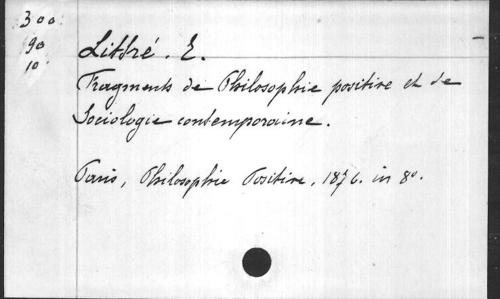 300
90
10
Littré. E.
Fragments de Philosophie positive et de
Sociologie contemporaine.
Paris, Philosophie Positive, 1876. in 8o.